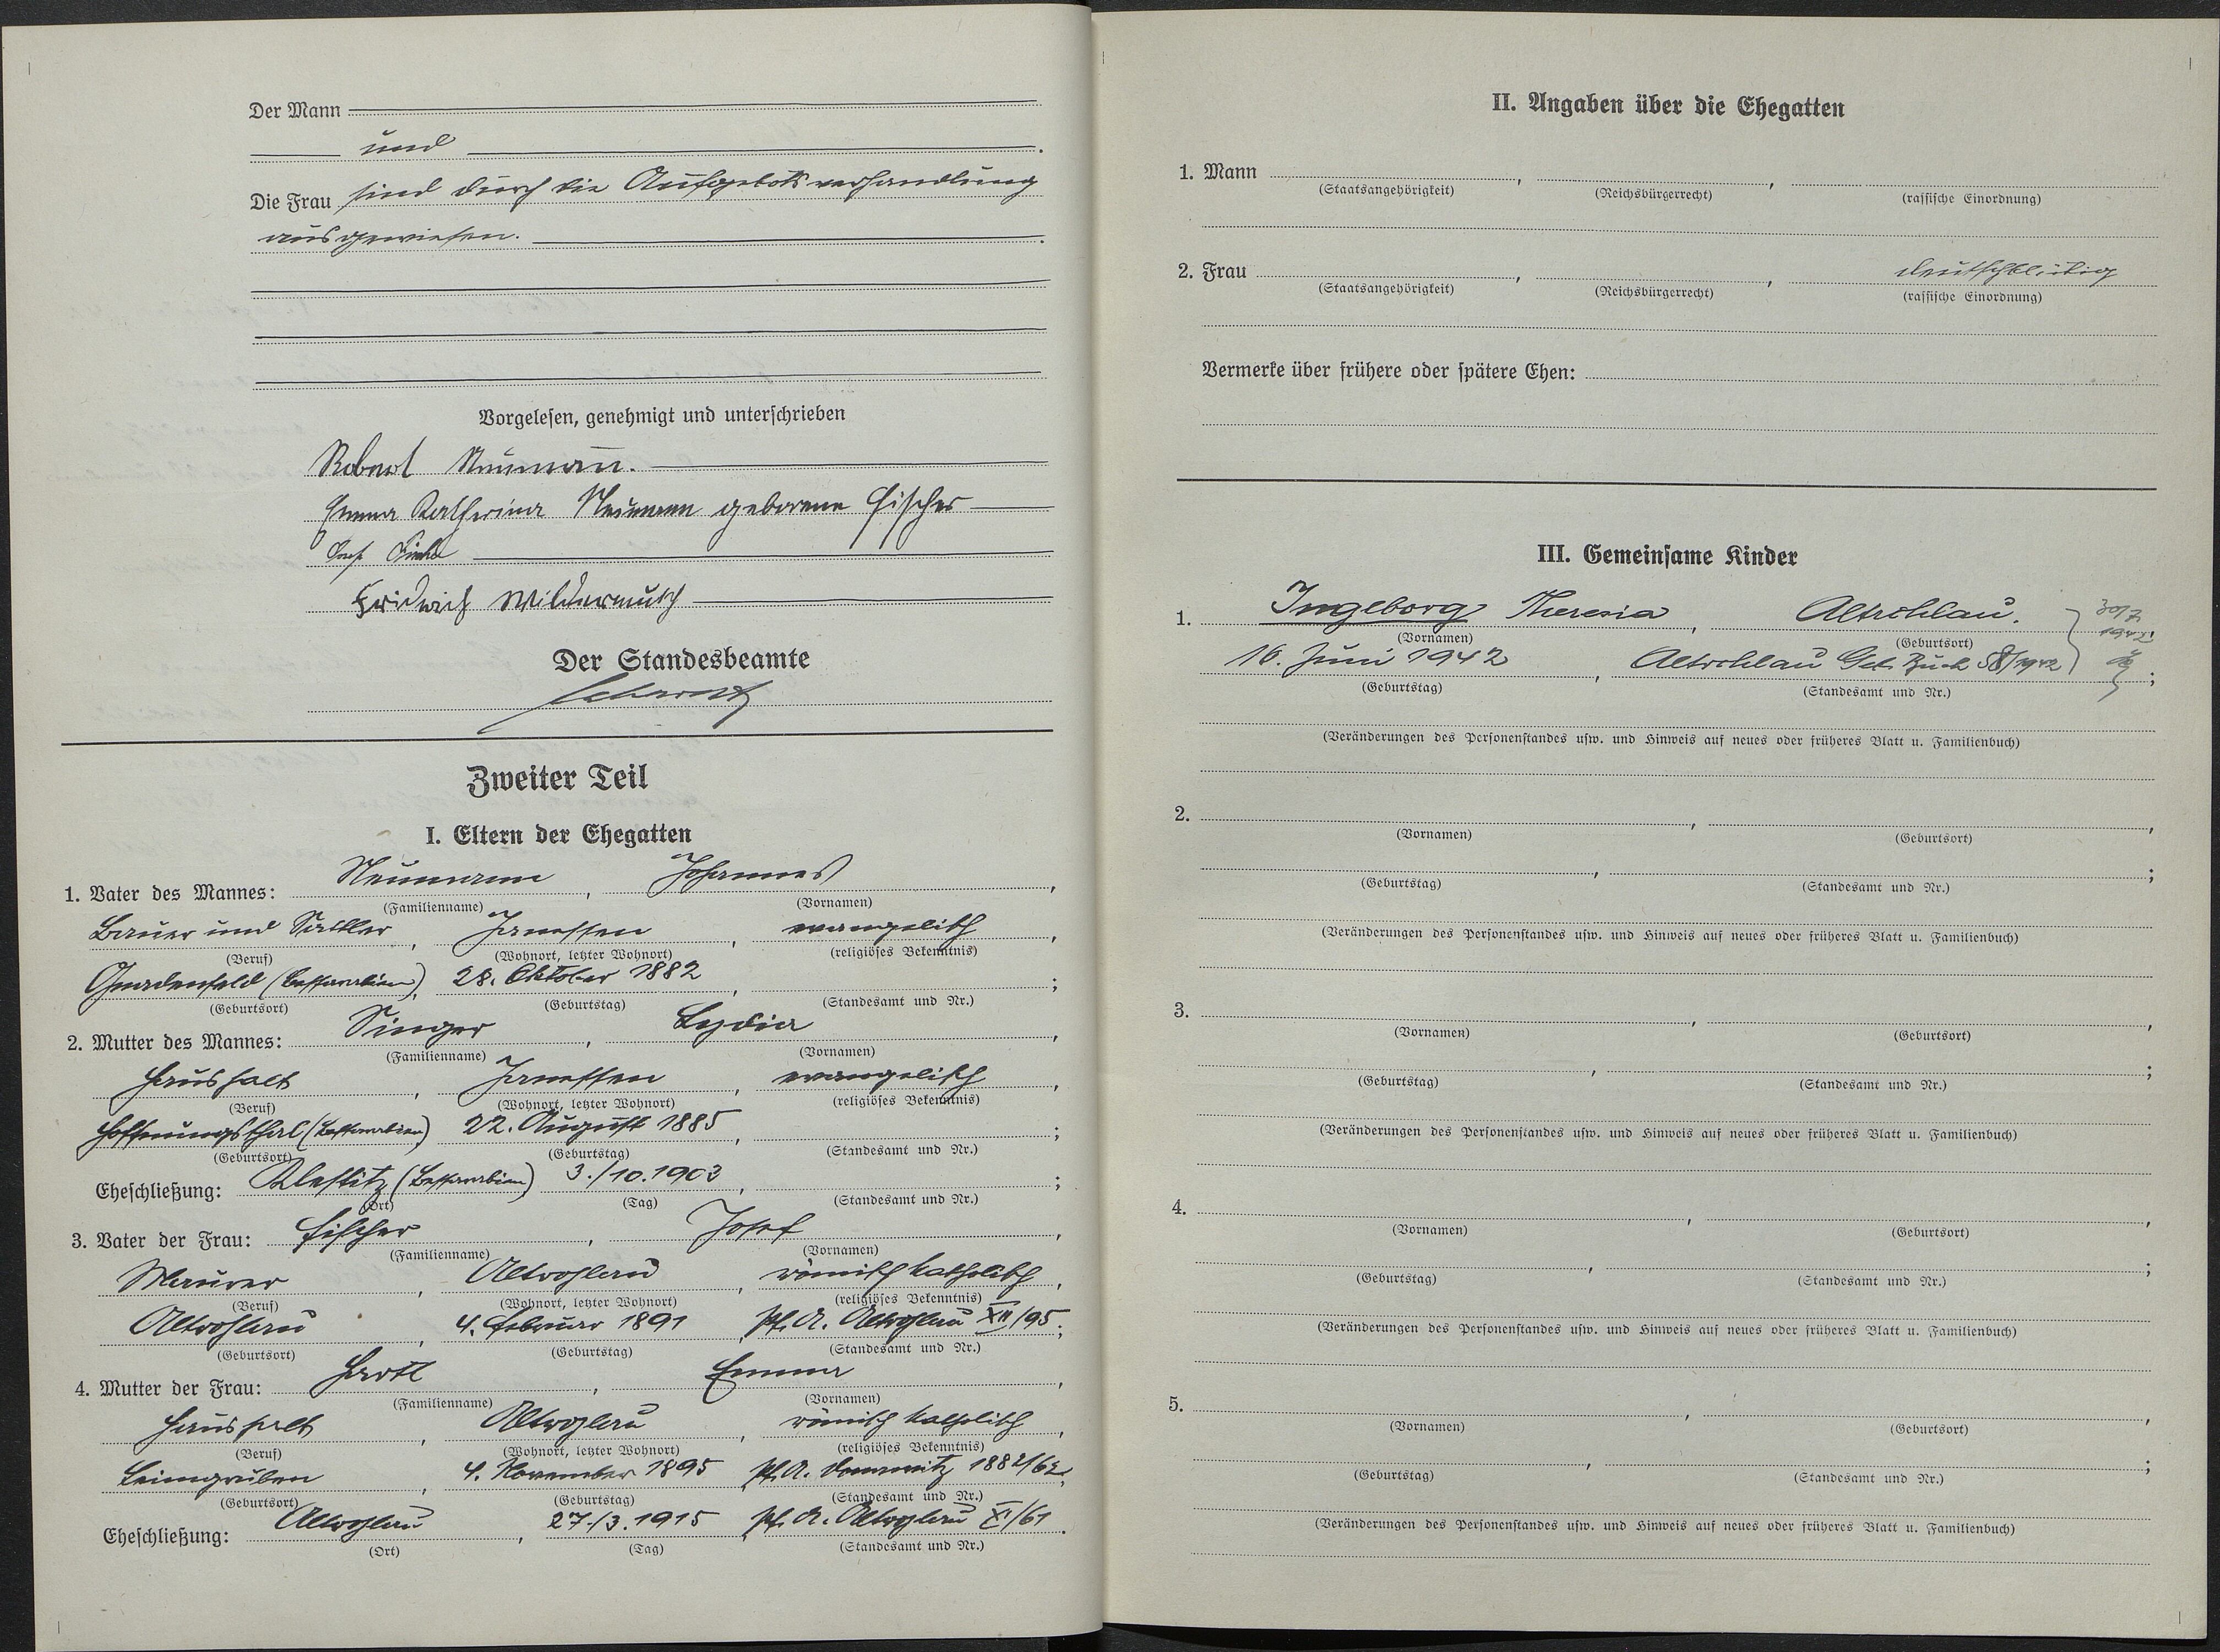 Der Mann
und
Die Frau sind durch die Aufgebotsverhandlung
ausgewiesen.
Vorgelesen, genehmigt und unterschrieben
Robert Neumann.
Emma Katharina Neumann geborene Fischer
Fridrich Wildermuth
Der Standesbeamte
Zweiter Teil
I. Eltern der Ehegatten
1. Vater des Mannes: Neumann, Johannes,
(Familienname) (Vornamen)
Bauer und Sattler, Janessen, evangelisch,
(Beruf) (Wohnort, letzter Wohnort) (religiöses Bekenntnis)
Gnadenfeld (Bessarabien), 28. Oktober 1882, ;
(Geburtsort) (Geburtstag) (Standesamt und Nr.)
2. Mutter des Mannes: Singer, Lydia,
(Familienname) (Vornamen)
Haushalt, Janessen, evangelisch,
(Beruf) (Wohnort, letzter Wohnort) (religiöses Bekenntnis)
Hoffnungsthal (Bessarabien) 22. August 1885, ;
(Geburtsort) (Geburtstag) (Standesamt und Nr.)
Eheschließung: Klestitz (Bessarabien) 3./10.1903, ;
(Ort) (Tag) (Standesamt und Nr.)
3. Vater der Frau: Fischer, Josef,
(Familienname) (Vornamen)
Maurer, Altrohlau, römisch katholisch,
(Beruf) (Wohnort, letzter Wohnort) (religiöses Bekenntnis)
Altrohlau, 4. Februar 1891 Pf. A. Altrohlau XII/95;
(Geburtsort) (Geburtstag) (Standesamt und Nr.)
4. Mutter der Frau: Hartl, Emma,
(Familienname) (Vornamen)
Haushalt, Altrohlau, römisch katholisch,
(Beruf) (Wohnort, letzter Wohnort) (religiöses Bekenntnis)
Leimgruben, 4. November 1895 Pf. A. 1882/62;
(Geburtsort) (Geburtstag) (Standesamt und Nr.)
Eheschließung: Altrohlau, 27./3.1915 Pf. A. Altrohlau XI/61.
(Ort) (Tag) (Standesamt und Nr.)
II. Angaben über die Ehegatten
1. Mann , ,
(Staatsangehörigkeit) (Reichsbürgerrecht) (rassische Einordnung)
2. Frau , , deutschblütig
(Staatsangehörigkeit) (Reichsbürgerrecht) (rassische Einordnung)
Vermerke über frühere oder spätere Ehen:
III. Gemeinsame Kinder
1. Ingeborg Theresia, Altrohlau.
(Vornamen) (Geburtsort)
16. Juni 1942, Altrohlau Geb. Buch 58/1942 ;
(Geburtstag) (Standesamt und Nr.)
(Veränderungen des Personenstandes usw. und Hinweis auf neues oder früheres Blatt u. Familienbuch)
2. , ,
(Vornamen) (Geburtsort)
, ;
(Geburtstag) (Standesamt und Nr.)
(Veränderungen des Personenstandes usw. und Hinweis auf neues oder früheres Blatt u. Familienbuch)
3. , ,
(Vornamen) (Geburtsort)
, ;
(Geburtstag) (Standesamt und Nr.)
(Veränderungen des Personenstandes usw. und Hinweis auf neues oder früheres Blatt u. Familienbuch)
4. , ,
(Vornamen) (Geburtsort)
, ;
(Geburtstag) (Standesamt und Nr.)
(Veränderungen des Personenstandes usw. und Hinweis auf neues oder früheres Blatt u. Familienbuch)
5. , ,
(Vornamen) (Geburtsort)
, ;
(Geburtstag) (Standesamt und Nr.)
(Veränderungen des Personenstandes usw. und Hinweis auf neues oder früheres Blatt u. Familienbuch)